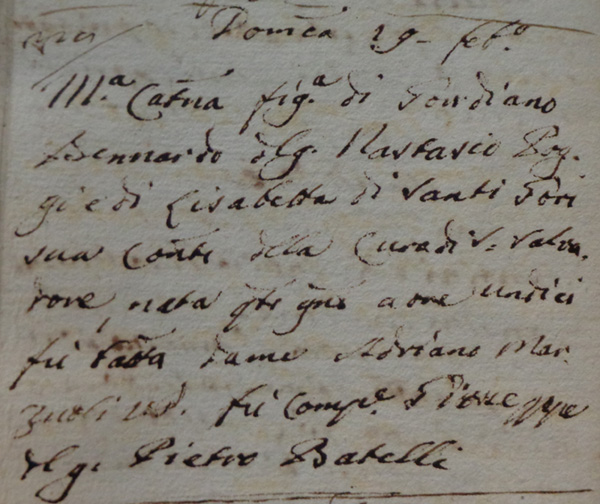 Domca 29 febo.
Ma. Catna figa. di Giordiano
Bennardo dlg. Nastasio Pog-
gi e di Lisabetta di Santi Gori
sua Conte della Cura di S. Salva-
tore, nata qto gno a ore undici
fu batta da me Adriano Mar-
zuoli fu Compe. Giuseppe
dlg. Pietro Batelli